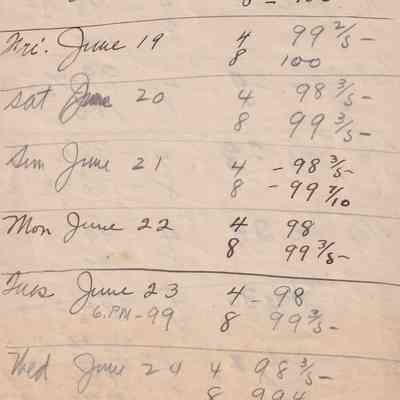 8 - 100
Fri. June 19 4 99 2/5 -
8 100
Sat June 20 4 98 3/5 -
8 99 3/5 -
Sun June 21 4 - 98 3/5 -
8 - 99 7/10
Mon June 22 4 98
8 99 3/5 -
Tues June 23 4 - 98
6. P.M - 99 8 99 3/5 -
Wed June 24 4 98 3/5 -
8 994